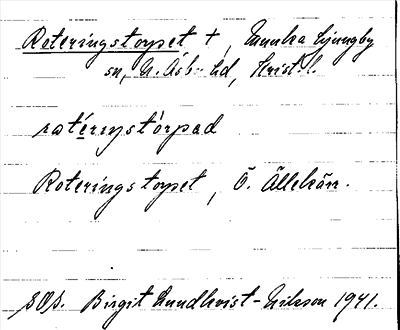 Roteringstorpet †, Munka Ljungby
sn, N. Åsbo hd, Krist. l.
rotérıŋstórpad
Roteringstorpet, Ö. Ällekärr.
SOA. Birgit Lundkvist-Nilsson 1941.